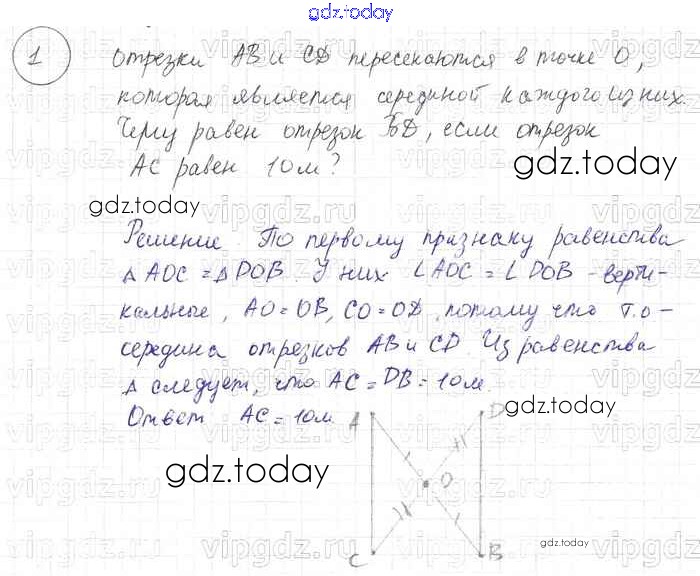 gdz.today
1 Отрезки AB и CD пересекаются в точке O,
которая является серединой каждого из них.
Чему равен отрезок BD, если отрезок
AC равен 10 м?
gdz.today
gdz.today
Решение. По первому признаку равенства
△ AOC = △ DOB. У них ∠AOC = ∠DOB - верти-
кальные, AO = OB, CO = OD, потому что т. O -
середина отрезков AB и CD. Из равенства
△ следует, что AC = DB = 10 м.
Ответ. AC = 10 м.
gdz.today
A D
O
gdz.today
gdz.today
C B
vipgdz.ru